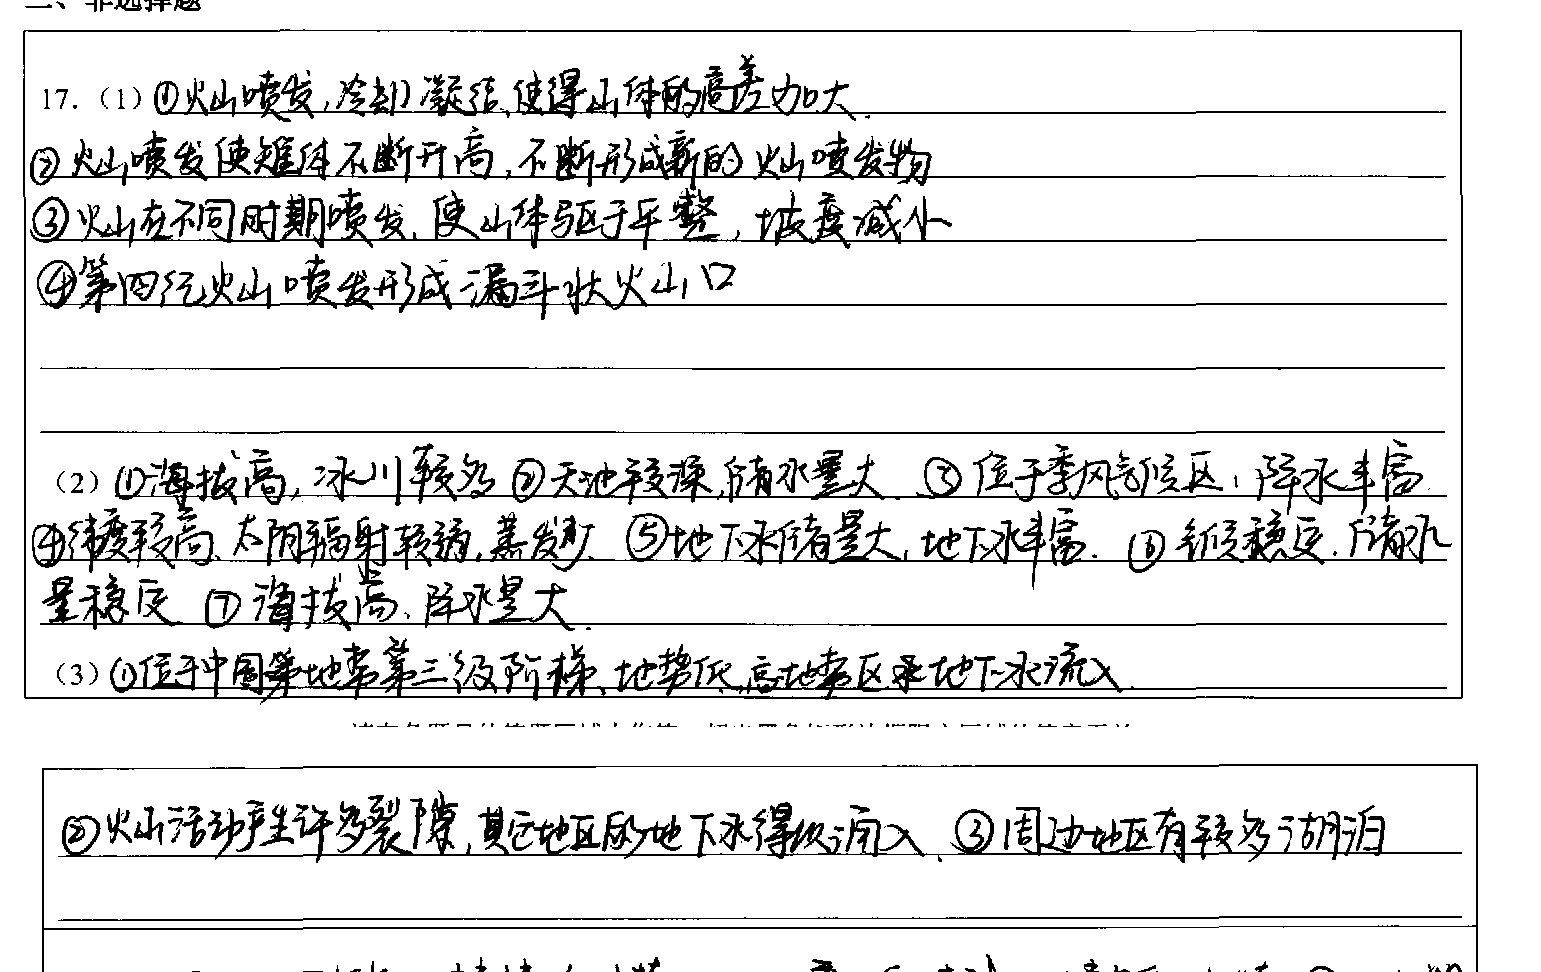 二、非选择题
17.（1）①火山喷发,冷却凝结,使得山体的高差加大.
②火山喷发使锥体不断升高,不断形成新的火山喷发物
③火山在不同时期喷发,使山体驱于平整,坡度减小
④第四纪火山喷发形成漏斗状火山口
（2）①海拔高,冰川较多 ②天池较深,储水量大. ③位于季风气候区,降水丰富.
④纬度较高、太阳辐射较弱,蒸发少 ⑤地下水储量大,地下水丰富. ⑥气候稳定.储水
量稳定 ⑦海拔高、降水量大.
（3）①位于中国第地势第三级阶梯、地势低,高地势区来地下水流入.
②火山活动产生许多裂隙,其它地区的地下水得以流入. ③周边地区有较多湖泊